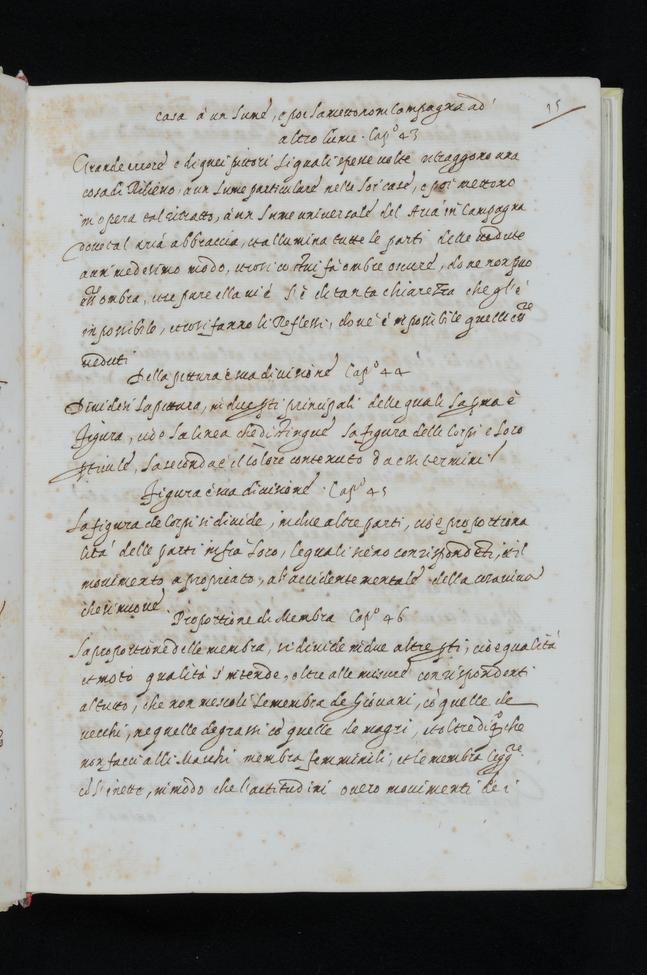 15
casa à un lume, e poi la mettono in Campagna ad
altro lume. Cap.º 43
Grande errore è di quei pittori li quali spesse volte ritraggono una
cosa di Rilievo, à un lume particulare nelle lor case, e poi mettono
in opera tal ritratto, à un lume universale del Aria in Campagna
dove tal aria abbraccia, et allumina tutte le parti delle vedute
a un medesimo modo, et così costui fà ombre oscure, dove non può
ombra, et se pure ella vi è si è di tanta chiarezza che gl'è
impossibile, et così fanno li Reflessi, dov'è è impossibile quelli
veduti
Della pittura è sua divisione Cap.º 44
Dividesi la pittura, in due pti principali delle quali la pma è
figura, cioè la linea che distingue la figura delli Corpi e loro
, la seconda è il Colore contenuto da essi termini
Figura è sua divisione. Cap.º 45
La figura de Corpi si divide, in due altre parti, cioè proportiona
lità delle parti infra loro, le quali sieno corrispondenti, et il
movimento apropriato, al' accidente mentale della
che si muove
Proportione di Membra Cap.º 46
La proportione delle membra, si divide in due altre pti, cioè qualità
et moto qualità s'intende, oltre alle misure corrispondenti
al tutto, che non mescoli le membra de Giovani, cò quelle de
vecchi, ne quelle de grassi cò quelle de magri, et oltre di qº che
non facci alli Maschi membra femminili, et le membra
, in modo che l'attitudini overo movimenti de i